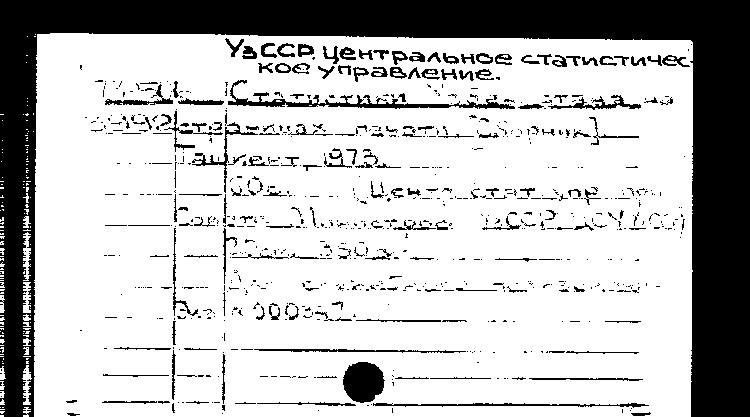 УзССР. Центральное статистичес-
кое управление.
Статистики Узбекистана на
страницах печати. [Сборник].
Ташкент, 1973.
60с. (Центр. стат. упр. при
Совете Министров УзССР. ЦСУ
22см. 350 э.
Для служебного пользования
Экз. № 000347.